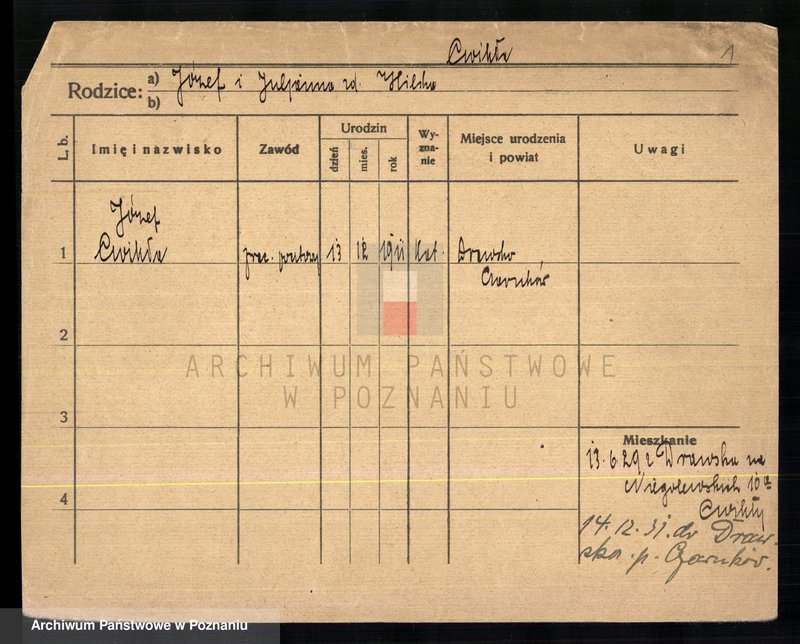 Ćwikła
1
Rodzice: a) Józef i Juljanna zd. Hilska
b)
L. b.
Imię i nazwisko
Zawód
Urodzin
dzień
mies.
rok
Wy-
zna-
nie
Miejsce urodzenia
i powiat
Uwagi
Józef
1 Ćwikła prac. 13 12 1911 kat. Drawsko
Czarnków
2
ARCHIWUM PAŃSTWOWE
W POZNANIU
3
Mieszkanie
13.6.29 z Drawska na
4
Niegolewskich 10a
Ćwikły
14.12.31. do Draw-
ska. p. Czarnków.
Archiwum Państwowe w Poznaniu